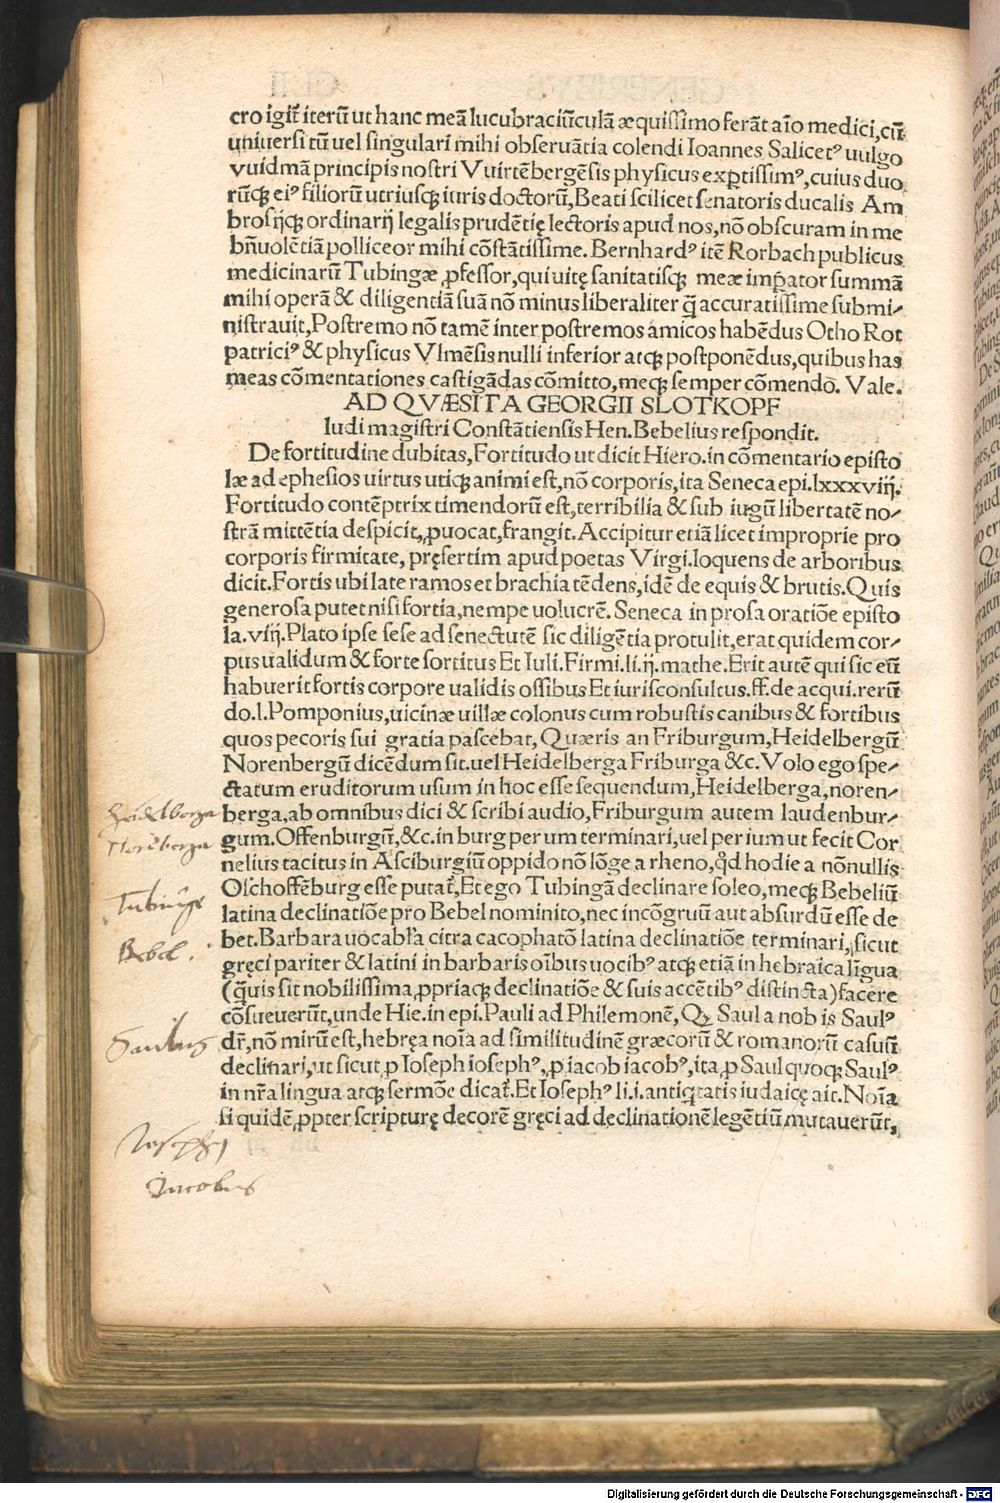 cro igit̃ iterũ ut hanc meã lucubraciũculã æquissimo ferãt aĩo medici, cũ
uniuersi tũ uel singulari mihi obseruãtia colendi Ioannes Salicetꝰ uulgo
vuidmã principis nostri Vuirtẽbergẽsis physicus exꝑtissimꝰ, cuius duo
rũcꝗ eiꝰ filiorũ utriuscꝗ iuris doctorũ, Beati scilicet senatoris ducalis Am
brosijcꝗ ordinarij legalis prudẽtię lectoris apud nos, nõ obscuram in me
bñuolẽtiã polliceor mihi cõstãtissime. Bernhardꝰ itẽ Rorbach publicus
medicinarũ Tubingæ ꝓfessor, qui uitę sanitatiscꝗ meæ imꝑator summã
mihi operã & diligentiã suã nõ minus liberaliter q̃ accuratissime submi-
nistrauit, Postremo nõ tamẽ inter postremos amicos habẽdus Otho Rot
patriciꝰ & physicus Vlmẽsis nulli inferior atcꝗ postponẽdus, quibus has
meas cõmentationes castigãdas cõmitto, mecꝗ semper cõmendo. Vale.
AD QVÆSITA GEORGII SLOTKOPF
ludi magistri Constãtiensis Hen. Bebelius respondit.
De fortitudine dubitas, Fortitudo ut dicit Hiero. in cõmentario episto
læ ad ephesios uirtus uticꝗ animi est, nõ corporis, ita Seneca epi. lxxxviij.
Fortitudo contẽptrix timendorũ est, terribilia & sub iugũ libertatẽ no-
strã mittẽtia despicit, ꝓuocat, frangit. Accipitur etiã licet improprie pro
corporis firmitate, pręsertim apud poetas Virgi. loquens de arboribus
dicit. Fortis ubi late ramos et brachia tẽdens, idẽ de equis & brutis. Quis
generosa putet nisi fortia, nempe uolucrẽ. Seneca in prosa oratiõe episto
la. viij. Plato ipse sese ad senectutẽ sic diligẽtia protulit, erat quidem cor-
pus ualidum & forte sortitus Et Iuli. Firmi. li. ij. mathe. Erit autẽ qui sic eũ
habuerit fortis corpore ualidis ossibus Et iurisconsultus. ff. de acqui. rerũ
do. l. Pomponius, uicinæ uillæ colonus cum robustis canibus & fortibus
quos pecoris sui gratia pascebat, Quæris an Friburgum, Heidelbergũ
Norenbergũ dicẽdum sit. uel Heidelberga Friburga &c. Volo ego spe-
ctatum eruditorum usum in hoc esse sequendum, Heidelberga, noren-
berga, ab omnibus dici & scribi audio, Friburgum autem laudenbur-
gum. Offenburgũ, &c. in burg per um terminari, uel per ium ut fecit Cor
nelius tacitus in Asciburgiũ oppido nõ lõge a rheno, qd̃ hodie a nõnullis
Oschoffẽburg esse putat̃, Et ego Tubingã declinare soleo, mecꝗ Bebeliũ
latina declinatiõe pro Bebel nominito, nec incõgruũ aut absurdũ esse de
bet. Barbara uocabl̃a citra cacophatõ latina declinatiõe terminari, sicut
gręci pariter & latini in barbaris oĩbus uocibꝰ atcꝗ etiã in hebraica lĩgua
(q̃uis sit nobilissima, ꝓpriacꝗ declinatiõe & suis accẽtibꝰ distincta) facere
cõsueuerũt, unde Hie. in epi. Pauli ad Philemonẽ, Qꝫ Saul a nobis Saulꝰ
dr̃, nõ mirũ est, hebręa noĩa ad similitudinẽ græcorũ & romanorũ casuũ
declinari, ut sicut ꝓ Ioseph iosephꝰ, ꝓ iacob iacobꝰ, ita ꝓ Saul quocꝗ Saulꝰ
in nr̃a lingua atcꝗ sermõe dicat̃. Et Iosephꝰ li. i. antiq̃tatis iudaicę ait. Noĩa
siquidẽ ꝓpter scripturę decorẽ gręci ad declinationẽ legẽtiũ mutauerũt,
Heidelberga
Norẽberga
Tubinge
Bebel.
Saulus
Josephus
Jacobus
Digitalisierung gefördert durch die Deutsche Forschungsgemeinschaft - DFG